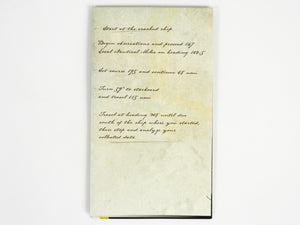 Start at the crashed ship
Begin observations and proceed 267
Local Nautical Miles on heading 102.5
Set course 195 and continue 65 nmi
Turn 59° to starboard
and travel 115 nmi
Travel at heading 305 until due
south of the ship where you started,
then stop and analyze your
collected data